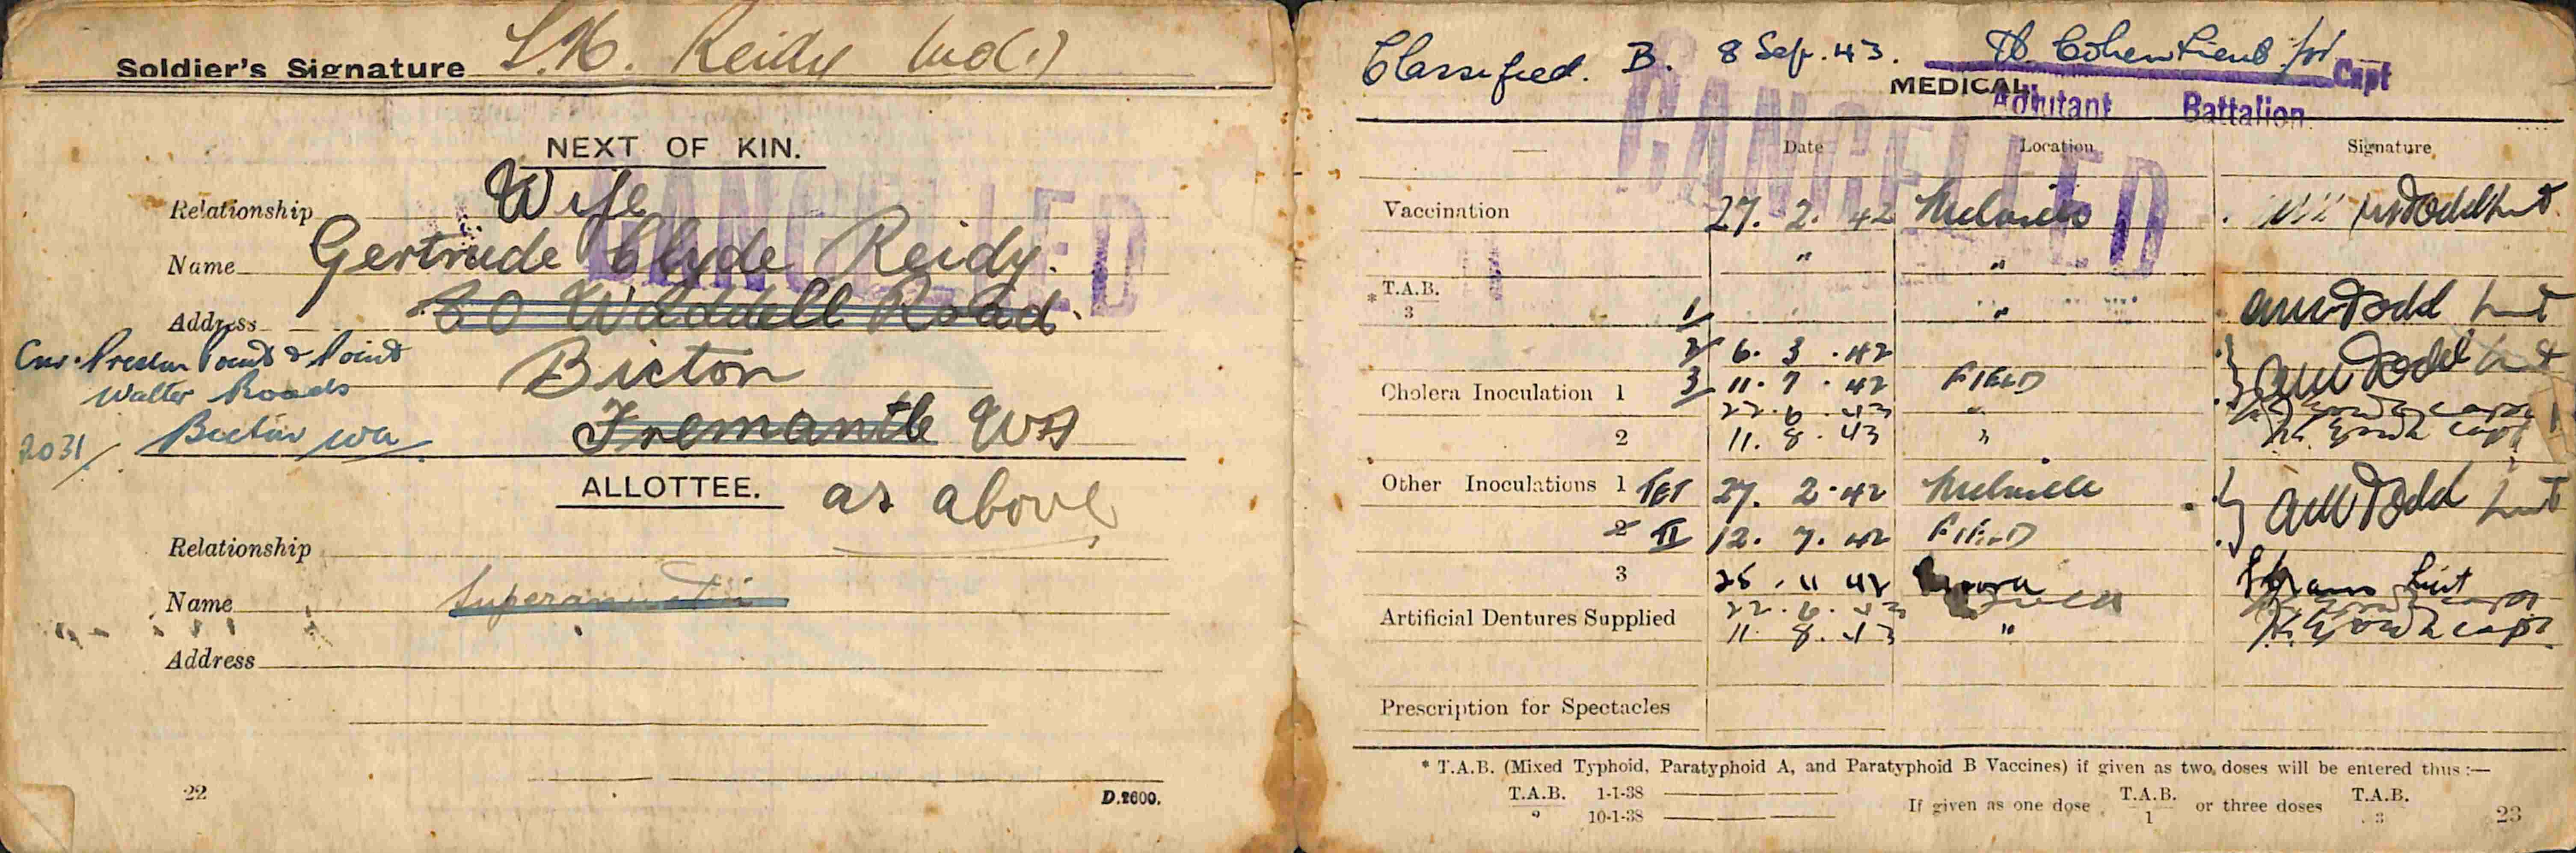 Soldier's Signature L.H. Reidy
NEXT OF KIN.
CANCELLED
Relationship Wife
Name Gertrude Clyde Reidy.
Address 60 Waddell Road.
Cnr. Preston Point & Point
Walter Roads
Bicton
Bicton WA
2031/
Fremantle WA
ALLOTTEE. as above
Relationship
Name Superannuation
Address
22
D.2600.
Classified. B. 8 Sep. 43. Cohen Lieut for Capt
MEDICAL
Adjutant Battalion
CANCELLED
Date Location Signature
Vaccination 27. 2. 42 Melville
" "
* T.A.B. " A W Todd Lieut
3 1/
2/ 6. 3. 42
Cholera Inoculation 1 3/ 11. 7. 42 FIELD A W Todd Lieut
22. 6. 43 " Capt
2 11. 8. 43 " Capt
Other Inoculations 1 TET 27. 2. 42 Melville A W Todd Lieut
2 II 12. 7. 42 FIELD
3 25. 11 42 Lieut
Artificial Dentures Supplied 22. 6. 43 Field Capt
11. 8. 43 " Capt
Prescription for Spectacles
* T.A.B. (Mixed Typhoid, Paratyphoid A, and Paratyphoid B Vaccines) if given as two doses will be entered thus :—
T.A.B. 1-1-38
2 10-1-38
If given as one dose T.A.B. 1 or three doses T.A.B. 3
23